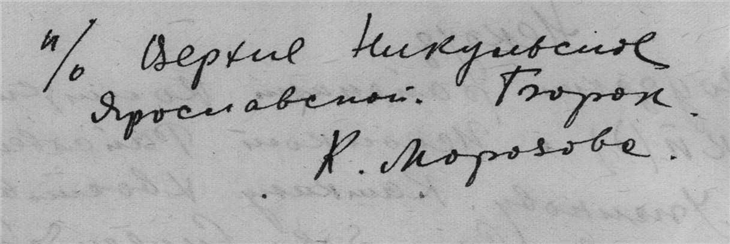 п/о Верхне Никульское
Ярославской. Борок.
К. Морозова.